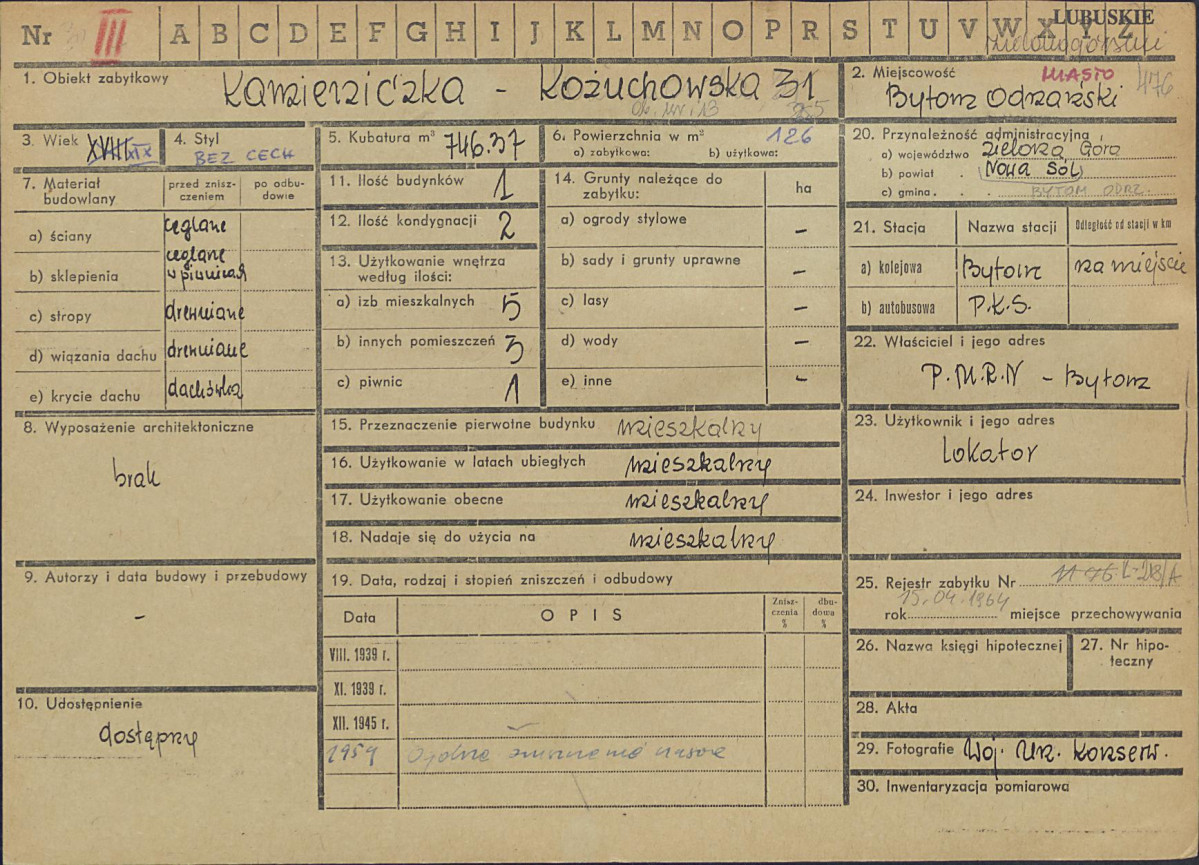 Nr III A B C D E F G H I J K L M N O P R S T U V W X Y Z
LUBUSKIE
zielonogórskie
1. Obiekt zabytkowy Kamieniczka - Kożuchowska 31
2. Miejscowość MIASTO 476
Bytom Odrzański
3. Wiek XVIII XIX
4. Styl BEZ CECH
5. Kubatura m³ 746.37
6. Powierzchnia w m² 126
a) zabytkowa: b) użytkowa:
20. Przynależność administracyjna
a) województwo Zielona Góra
b) powiat Nowa Sól
c) gmina BYTOM ODRZ.
7. Materiał budowlany
przed zniszczeniem
po odbudowie
a) ściany ceglane
b) sklepienia ceglane w piwnicach
c) stropy drewniane
d) wiązania dachu drewniane
e) krycie dachu dachówka
11. Ilość budynków 1
12. Ilość kondygnacji 2
13. Użytkowanie wnętrza według ilości:
a) izb mieszkalnych 5
b) innych pomieszczeń 3
c) piwnic 1
14. Grunty należące do zabytku: ha
a) ogrody stylowe -
b) sady i grunty uprawne -
c) lasy -
d) wody -
e) inne -
21. Stacja Nazwa stacji Odległość od stacji w km
a) kolejowa Bytom na miejscu
b) autobusowa P.K.S.
22. Właściciel i jego adres
P.M.R.N - Bytom
8. Wyposażenie architektoniczne
brak
15. Przeznaczenie pierwotne budynku mieszkalny
16. Użytkowanie w latach ubiegłych mieszkalny
17. Użytkowanie obecne mieszkalny
18. Nadaje się do użycia na mieszkalny
23. Użytkownik i jego adres
Lokator
24. Inwestor i jego adres
9. Autorzy i data budowy i przebudowy
-
19. Data, rodzaj i stopień zniszczeń i odbudowy
Data OPIS Zniszczenia % dbudowa %
VIII. 1939 r.
XI. 1939 r.
XII. 1945 r.
1959
25. Rejestr zabytku Nr L-28/A
rok 15.04.1964 miejsce przechowywania
26. Nazwa księgi hipotecznej
27. Nr hipoteczny
10. Udostępnienie
dostępny
28. Akta
29. Fotografie Woj. Urz. Konserw.
30. Inwentaryzacja pomiarowa